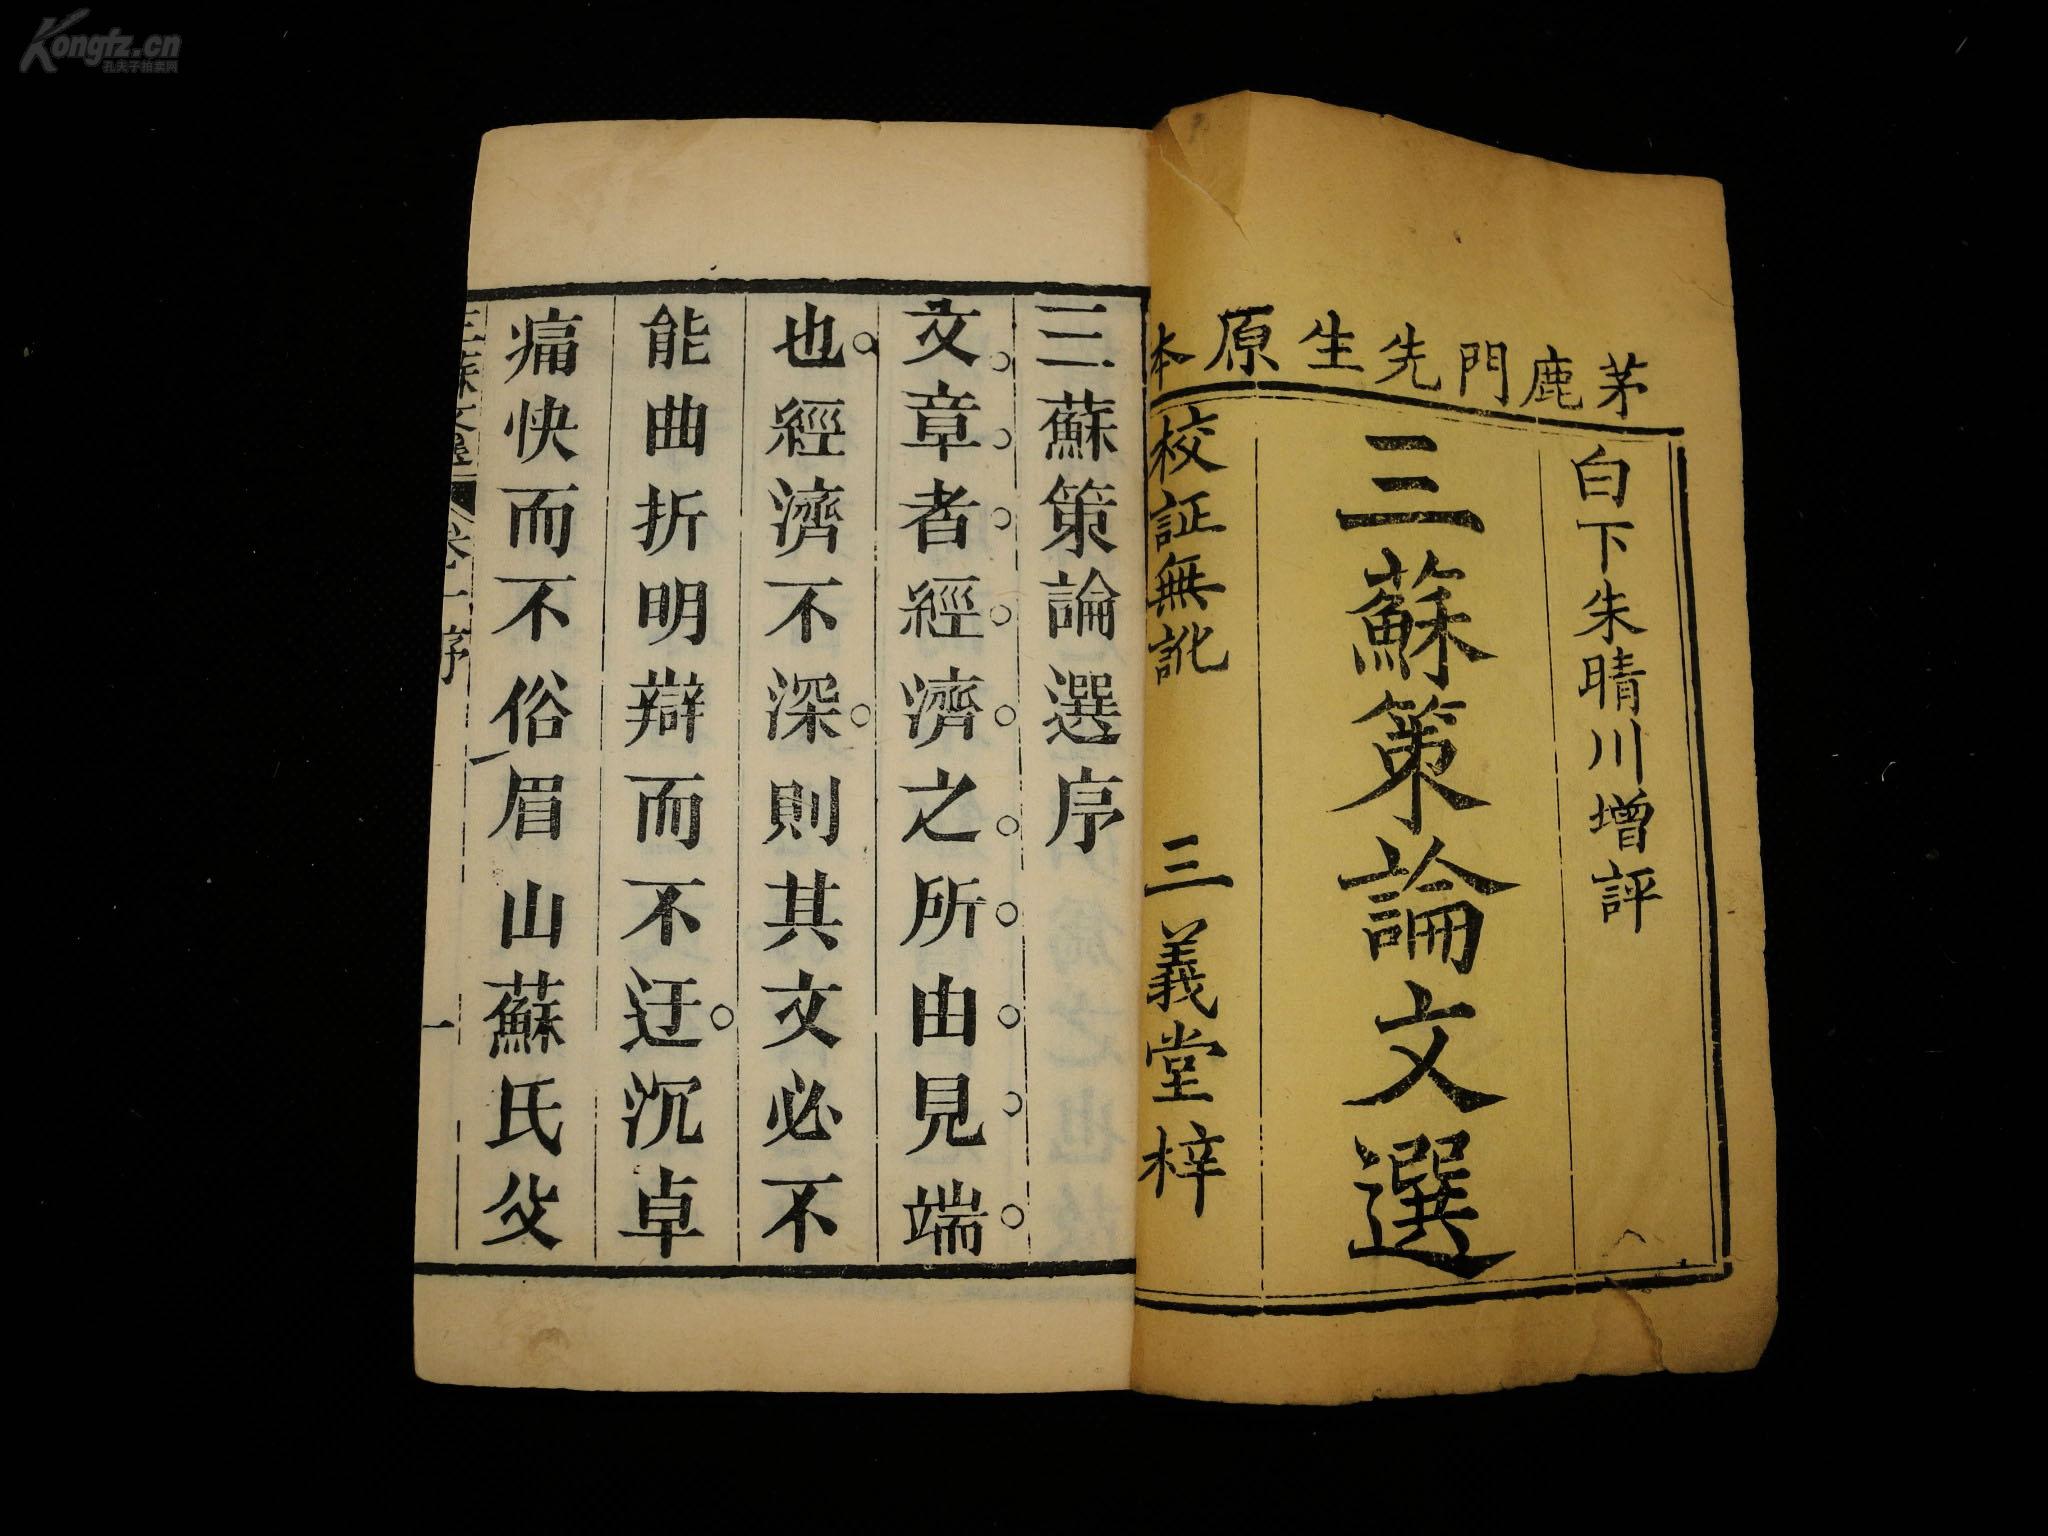 Kongfz.cn
孔夫子拍卖网
茅鹿門先生原本
白下朱晴川增評
三蘇策論文選
校証無訛 三義堂梓
三蘇策論選序
文章者經濟之所由見端
也經濟不深則其文必不
能曲折明辯而不迂沉卓
痛快而不俗眉山蘇氏父
三蘇文選 卷一序 一